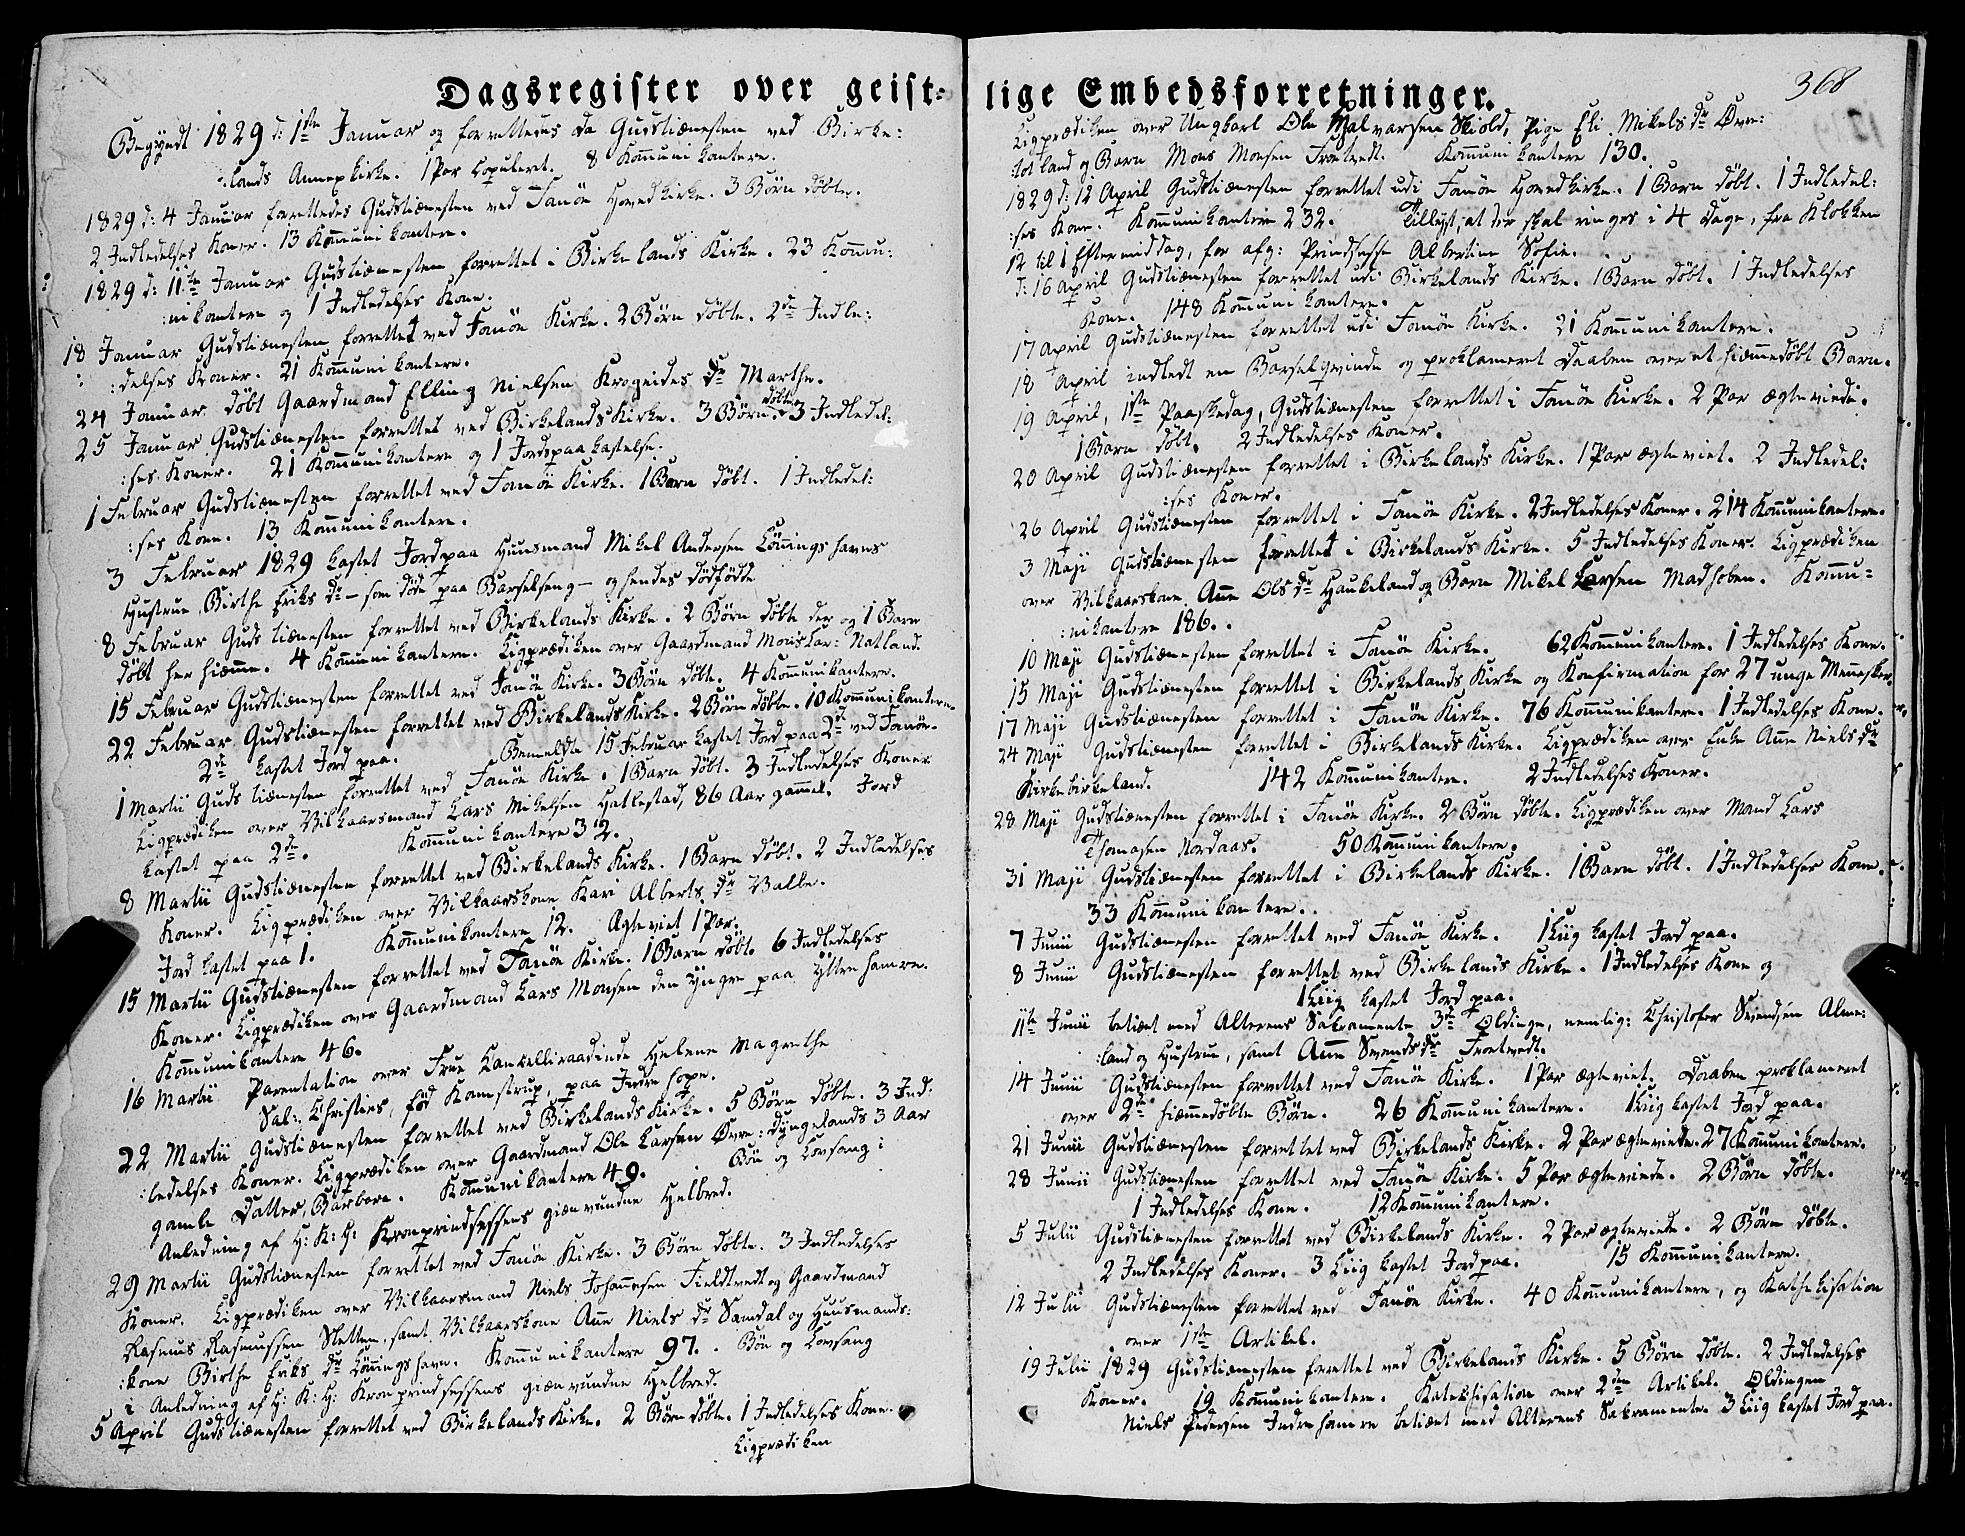 Dagsregister over geist-
Begyndt 1829 d: 1ste Januar og forrettedes da Gudstienesten ved Birke:
:lands Annexkirke. 1 Par Copuleret. 8 Kom̄unikantere.
1829 d: 4 Januar forrettedes Gudstienesten ved Fanöe Hovedkirke. 3 Börn döbte.
2 Indledelses Koner. 13 Kom̄unikantere.
1829 d: 11te Januar Gudstienesten forrettet i Birkelands Kirke. 23 Kom̄u:
:nikantere og 1 Indledelses Kone.
18 Januar Gudstienesten forrettet ved Fanöe Kirke. 2 Börn döbte. 2de Indle:
:delses Koner. 21 Kom̄unikantere.
24 Januar döbt Gaardmand Elling Nielsen Krogeides Dr Marthe.
25 Januar Gudstienesten forrettet ved Birkelands Kirke. 3 Börn döbte. 3 Indledel:
:ses Koner. 21 Kom̄unikantere og 1 Jordspaakastelse.
1 Februar Gudstienesten forrettet ved Fanöe Kirke. 1 Barn döbt. 1 Indledel:
:ses Kone. 13 Kom̄unikantere.
3 Februar 1829 kastet Jord paa Huusmand Mikel Andersen Lönningshavns
Hustrue Birthe Eriks Dr – som döde paa Barselseng – og hendes dödfödte
8 Februar Gudstienesten forrettet ved Birkelands Kirke. 2 Börn döbte der og 1 Barn
döbt her hiem̄e. 4 Kom̄unikantere. Ligprædiken over Gaardmand Mons Lar: Natland.
15 Februar Gudstienesten forrettet ved Fanöe Kirke. 3 Börn döbte. 4 Kom̄unikantere.
22 Februar Gudstienesten forrettet ved Birkelands Kirke. 2 Börn döbte. 10 Kom̄unikantere.
2de kastet Jord paa. Bemeldte 15 Februar kastet Jord paa 2de ved Fanöe.
1 Martii Gudstienesten forrettet ved Fanöe Kirke. 1 Barn döbt. 3 Indledelses Koner
Ligprædiken over Vilkaarsmand Lars Mikelsen Hatlestad, 86 Aar gammel. Jord
kastet paa 2de. Kom̄unikantere 32.
8 Martii Gudstienesten forrettet ved Birkelands Kirke. 1 Barn döbt. 2 Indledelses
Koner. Ligprædiken over Vilkaarskone Kari Alberts Dr Valle.
Jord kastet paa 1. Kom̄unikantere 12. Ægteviet 1 Par.
15 Martii Gudstienesten forrettet ved Fanöe Kirke. 1 Barn döbt. 6 Indledelses
Koner. Ligprædiken over Gaardmand Lars Monsen den yngre paa Yttrehamre.
Kom̄unikantere 46.
16 Martii Parentation over Frue Cancelliraadinde Helene Magrethe
Sal: Christies, föd Kamstrup, paa Indre hope.
22 Martii Gudstienesten forrettet ved Birkelands Kirke. 5 Börn döbte. 3 Ind:
:ledelses Koner. Ligprædiken over Gaardmand Ole Larsen Övre: Dyngelands 3 Aar
gamle Datter, Barbara. Kom̄unikantere 49. Bön og Lovsang i
Anledning af H: K: H: Kronprindsessens gienvundne Helbred.
29 Martii Gudstienesten forrettet ved Fanöe Kirke. 3 Börn döbte. 3 Indledelses
Koner. Ligprædiken over Vilkaarsmand Niels Johannesen Fieldtvedt og Gaardmand
Rasmus Rasmussen Sletten, samt Vilkaarskone Anne Niels Dr Samdal og Huusmands:
:kone Birthe Eriks Dr Lönningshavn. Kom̄unikantere 97. Bön og Lovsang
i Anledning af H: K: H: Kronprindsessens gienvundne Helbred.
5 April Gudstienesten forrettet ved Birkelands Kirke. 2 Börn döbte. 1 Indledelses Kone.
Ligprædiken
lige Embedsforretninger.
368
Ligprædiken over Ungkarl Ole Halvarsen Skiold, Pige Eli Mikels Dr Övre:
:totland og Barn Mons Monsen Tvetvedt. Kom̄unikantere 130.
1829 d: 12 April Gudstienesten forrettet udi Fanöe Hovedkirke. 1 Barn döbt. 1 Indledel:
:ses Kone. Kom̄unikantere 232. Tillyst, at der skal ringes i 4 Dage, fra Klokken
12 til 1 Eftermiddag, for afg: Prindsesse Albertine Sofie.
d: 16 April Gudstienesten forrettet udi Birkelands Kirke. 1 Barn döbt. 1 Indledelses
Kone. 148 Kom̄unikantere.
17 April Gudstienesten forrettet udi Fanöe Kirke. 21 Kom̄unikantere.
18 April indledt en Barselqvinde og proklameret Daaben over et hiem̄edöbt Barn.
19 April, 1ste Paaskedag, Gudstienesten forrettet i Fanöe Kirke. 2 Par ægteviede.
1 Barn döbt. 2 Indledelses Koner.
20 April Gudstienesten forrettet i Birkelands Kirke. 1 Par ægteviet. 2 Indledel:
:ses Koner.
26 April Gudstienesten forrettet i Fanöe Kirke. 2 Indledelses Koner. 214 Kom̄unikantere.
3 Maji Gudstienesten forrettet i Birkelands Kirke. 5 Indledelses Koner. Ligprædiken
over Vilkaarskone Anne Ols Dr Haukeland og Barn Mikel Larsen Madhoben. Kom̄u=
:nikantere 186.
10 Maji Gudstienesten forrettet i Fanöe Kirke. 62 Kom̄unikantere. 1 Indledelses Kone.
15 Maji Gudstienesten forrettet i Birkelands Kirke og Konfirmation for 27 unge Mennesker.
17 Maji Gudstienesten forrettet i Fanöe Kirke. 76 Kom̄unikantere. 1 Indledelses Kone.
24 Maji Gudstienesten forrettet i Birkelands Kirke. Ligprædiken over Enke Anne Niels Dr
Kirkebirkeland. 142 Kom̄unikantere. 2 Indledelses Koner.
28 Maji Gudstienesten forrettet i Fanöe Kirke. 2 Börn döbte. Ligprædiken over Mand Lars
Thomasen Nordaas. 50 Kom̄unikantere.
31 Maji Gudstienesten forrettet i Birkelands Kirke. 1 Barn döbt. 1 Indledelses Kone.
33 Kom̄unikantere.
7 Junii Gudstienesten forrettet ved Fanöe Kirke. 1 Liig kastet Jord paa.
8 Junii Gudstienesten forrettet ved Birkelands Kirke. 1 Indledelses Kone og
1 Liig kastet Jord paa.
11te Junii betient med Alterens Sakramente 3de Oldinge, nemlig: Christofer Svendsen Alme:
:land og Hustrue, samt Anne Svends Dr Tvetvedt.
14 Junii Gudstienesten forrettet ved Fanöe Kirke. 1 Par ægteviet. Daaben proklameret
over 2de hiem̄edöbte Börn. 26 Kom̄unikantere. 1 Liig kastet Jord paa.
21 Junii Gudstienesten forrettet ved Birkelands Kirke. 2 Par ægteviede. 27 Kom̄unikantere.
28 Junii Gudstienesten forrettet ved Fanöe Kirke. 5 Par ægteviede. 2 Börn döbte.
1 Indledelses Kone. 12 Kom̄unikantere.
5 Julii Gudstienesten forrettet ved Birkelands Kirke. 2 Par ægteviede. 2 Börn döbte.
2 Indledelses Koner. 3 Liig kastet Jord paa. 15 Kom̄unikantere.
12 Julii Gudstienesten forrettet ved Fanöe Kirke. 40 Kom̄unikantere, og Kathekisation
over 1ste Artikel.
19 Julii 1829 Gudstienesten forrettet ved Birkelands Kirke. 5 Börn döbte. 2 Indledelses
Koner. 19 Kom̄unikantere. Katekisation over 2den Artikel. Oldingen
Niels Pedersen Indrehamre betient med Alterens Sakramente. 3 Liig kastet Jord paa.